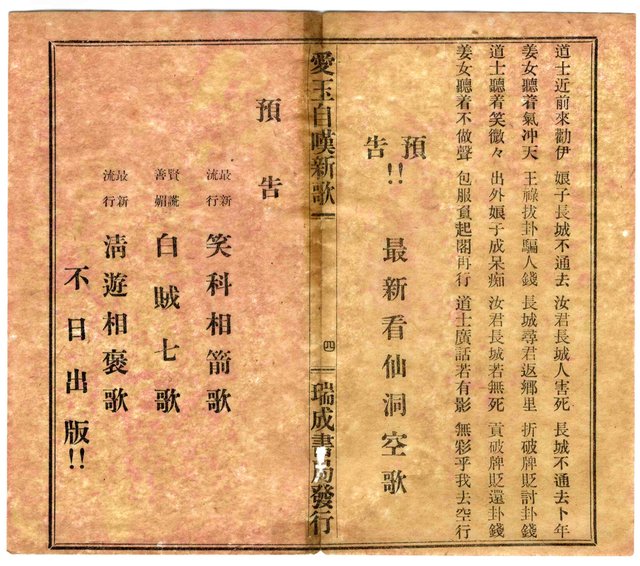 道士近前來勸伊　娘子長城不通去　汝君長城人害死　長城不通去卜年
姜女聽着氣冲天　王祿拔卦騙人錢　長城尋君返鄉里　折破牌貶討卦錢
道士聽着笑微々　出外娘子成呆痴　汝君長城若無死　貢破牌貶還卦錢
姜女聽着不做聲　包服負起閣再行　道士廣話若有影　無彩乎我去空行
預告!!
最新看仙洞空歌
愛玉自嘆新歌　㊃　瑞成書局發行
預告
最新流行　笑科相箭歌
賢謊善媚　白賊七歌
最新流行　淸遊相褒歌
不日出版!!